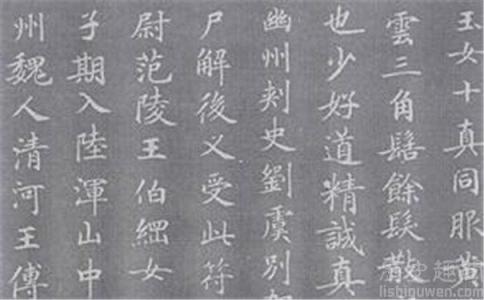 玉女十真同服黃
雲三角髻餘髮散
也少好道精誠真
幽州刾史劉虞別
尸解後又受此符
尉范陵王伯綱女
子期入陸渾山中
州魏人清河王傅
历史趣闻
lishiquwen.com